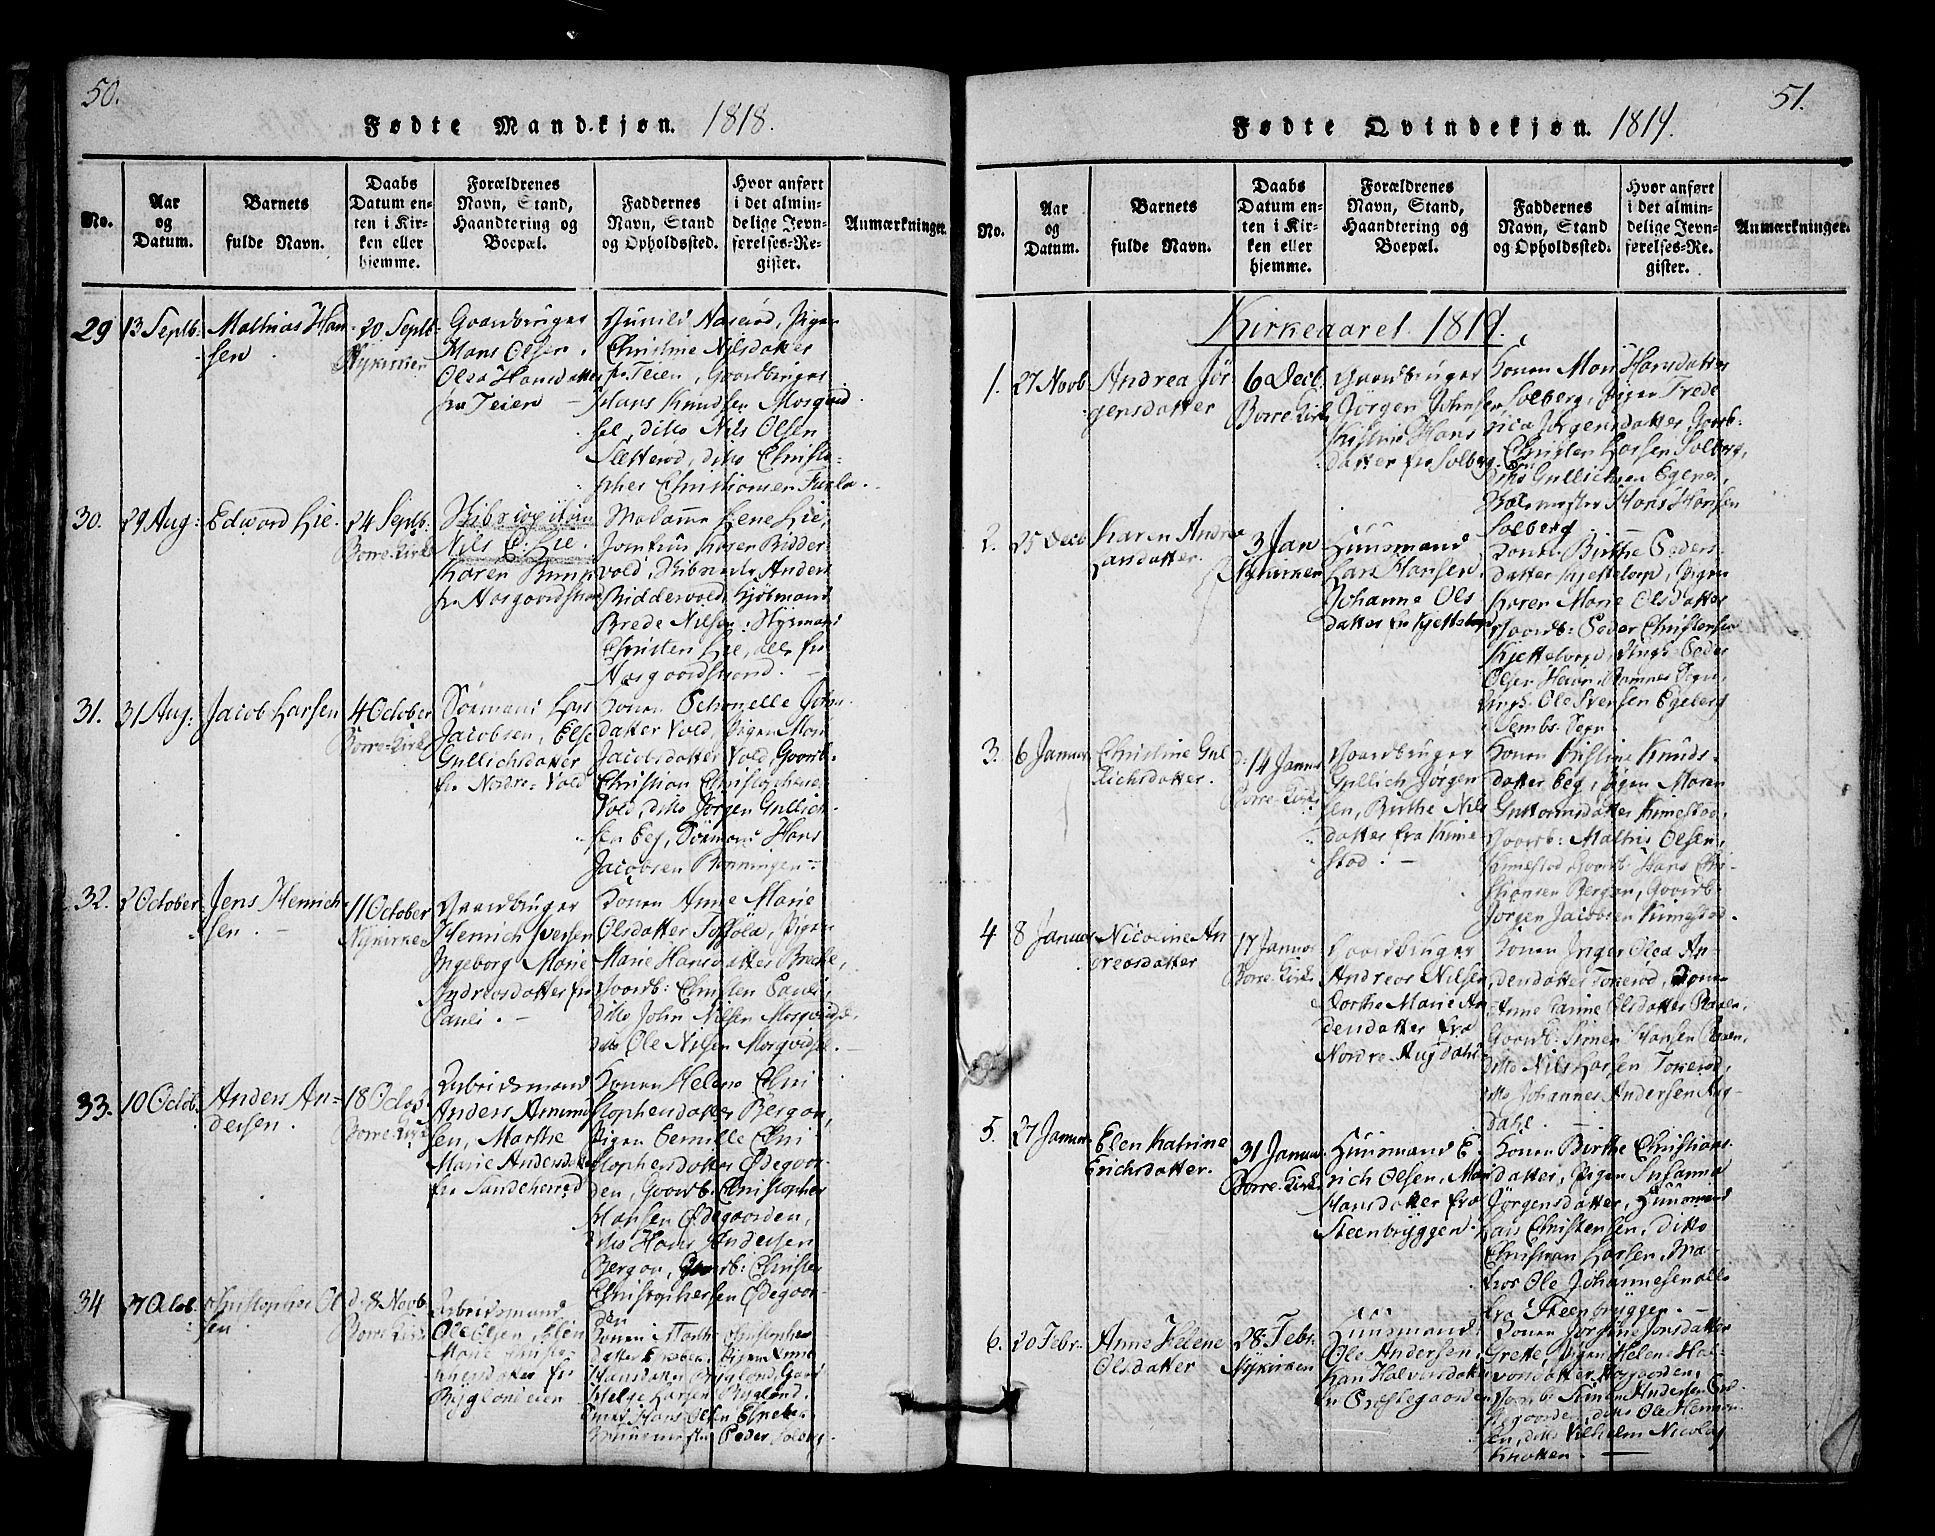 50.
Fødte Mandkjøn. 1818.
No.
Aar
og
Datum.
Barnets
fulde Navn.
Daabs
Datum en-
ten i Kir-
ken eller
hjemme.
Forældrenes
Navn, Stand,
Haandtering og
Boepæl.
Faddernes
Navn, Stand
og Opholdssted.
Hvor anført
i det almin-
delige Jevn-
førelses-Re-
gister.
Anmærkninger.
29
13 Septb:
Mathias Han-
sen.
20 Septb
Nykirken
Gaardbruger
Hans Olsen.
Olea Hansdatter
fra Teien
Gunild Naserød, Pigen
Christine Nilsdatter
fr. Teien, Gaardbruger
Hans Knudsen
sel, ditto Nils Olsen
Sletterød, ditto Christo-
pher Christiansen
30.
29 Aug:
Edward Lie.
24 Septb.
Borre Kirke
Skibscapitain
Nils E. Lie.
Karen Bump
fr. Aasgaardstran
Madame Lene Lie,
Jomfru Karen Ridder
vold, Anders
Riddervold, Kjöbmand
Brede Nilsen, Styrmand
Christen Lie, alle fra
Aasgaardstrand.
31.
31 Aug:
Jacob Larsen
4 October
Borre Kirke
Sömand Lars
Jacobsen, Else
Gullichsdatter
fr. Nordre Vold
Konen Petronelle John
datter Vold, Pigen Mari
Jacobsdatter Vold, Gaardb.
Christian Christophersen
Vold, ditto Jörgen Gullich-
sen Eeg, Sömand Hans
Jacobsen Rönningen
32.
2 October
Jens Henrich-
sen.
11 October
Nykirken
Gaardbruger
Henrich Iversen
Ingeborg Marie
Andreasdatter fra
Pauli.
Konen Anne Marie
Olsdatter Pigen
Marie Hansdatter Brekke,
Gaardb: Christen Pauli,
ditto John Nilsen
ditto Ole Nilsen
33.
10 Octob.
Anders An-
dersen.
18 Octob
Borre Kirke
Arbeidsmand
Anders Amund
sen, Marthe
Marie Andersdatter
fr. Sandeherred
Konen Helene Chri
stophersdatter Bergan,
Pigen Pernille Chri
stophersdatter Ødegaar-
den, Gaardb. Christopher
Hansen Ødegaarden,
ditto Hans Andersen
Bergan, Gaardb: Christen
Christophersen Ødegaar-
den
34
27 Octob.
Christopher Ol
sen.
d. 8 Novb
Borre Kirke
Arbeidsmand
Ole Olsen, Elen
Marie Christo-
phersdatter fr
Byglandseien
Konen Marthe Christopher
datter Pigen Anne
Hansdatter Bygland, Gaard
Helge Larsen Bygland,
Hans Olsen
Peder Solberg
51.
Fødte Qvindekjøn. 1819.
No.
Aar
og
Datum.
Barnets
fulde Navn.
Daabs
Datum en-
ten i Kir-
ken eller
hjemme.
Forældrenes
Navn, Stand,
Haandtering og
Boepæl.
Faddernes
Navn, Stand
og Opholdsted.
Hvor anført
i det almin-
delige Jevn-
førelses-Re-
gister.
Anmærkninger.
Kirkeaaret 1819.
1.
27 Novb
Andrea Jör
gensdatter
6 Decb.
Borre Kirke
Gaardbruger
Jörgen Johnsen
Kistine Hans
datter fr. Solberg
Konen Mari Hansdatter
Solberg, Pigen Frede
rica Jörgensdatter, Gaardb:
Christen Larsen Solberg,
ditto Gullichsen Egenes,
Hans Hansen
Solberg
2.
25 Decb
Karen Andrea
Larsdatter.
3 Jan
Nykirken
Huusmand
Lars Hansen,
Johanne Ols
datter fra Kjettelorp
Konen Birthe Peders
datter Kjettelorp, Pigen
Karen Marie Olsdatter
Gaardb: Peder Christensen
Kjettelorp, Peder
Olsen Ramnes Sogn,
Ole Iversen Egeberg
Sembs Sogn.
3.
6 Januar
Christine Gul
lichsdatter.
d: 14 Januar
Borre Kirke
Gaardbruger
Gullich Jörgen
sen, Birthe Nils
datter fra Kime
stad.
Konen Kistine Knuds-
datter Eeg, Pigen Maren
Guttormsdatter Kimestad,
Gaardb: Mathis Olsen,
Kimestad, Gaardb: Hans Chri-
stiansen Bergan, Gaardb:
Jörgen Jacobsen Kimestad.
4
8 Januar
Nicoline An
dreasdatter
17 Januar
Borre Kirke
Gaardbruger
Andreas Nilsen
Dorthe Marie An
dersdatter fra
Nordre Augdahl
Konen Inger Olea An-
dersdatter Torrerød, Konen
Anne Carine Elisdatter
Gaardb: Simen Hansen
ditto Nils Larsen Torrerød,
ditto Johannes Andersen Aug-
dahl.
5.
27 Januar
Elen Katrine
Erichsdatter.
31 Januar
Borre Kirke
Huusmand E-
rich Olsen, Mari
Hansdatter fra
Steenbryggen
Konen Birthe Christians
datter, Pigen Susanna
Jörgensdatter, Huusmand
Lars Christensen, ditto
Christian Larsen, Ma-
tros Ole Johannesen alle
fra Steenbryggen.
6.
20 Febr.
Anne Helene
Olsdatter
28 Febr.
Nykirken
Huusmand
Ole Andersen,
Kari Halvorsdatter
fra Præstegaarden
Konen Jørgine Jonsdatter
Grette, Pigen Helene Hal-
vorsdatter Haggarden,
Gaardb: Simen Andersen
ditto Ole Henrich-
sen, ditto Vilhelm Nicolay
Knotten.